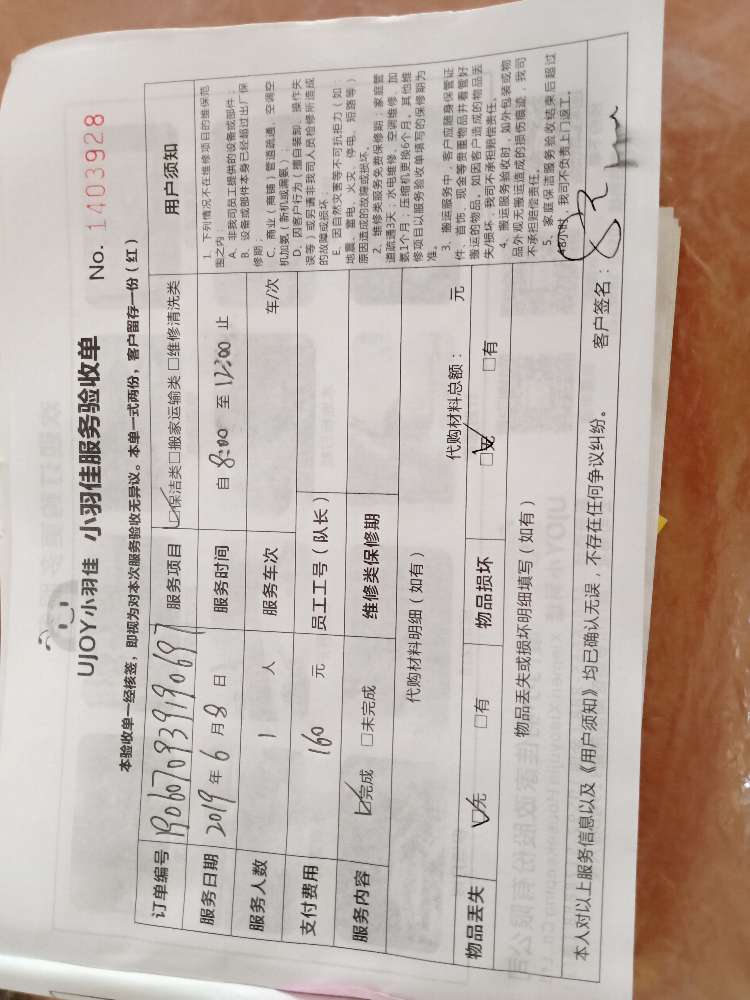 UJOY小羽佳 小羽佳服务验收单
No. 1403928
本验收单一经核签，即视为对本次服务验收无异议。本单一式两份，客户留存一份（红）
订单编号 190607093919069 服务项目 ☑保洁类□搬家运输类 □维修清洗类
服务日期 2019 年 6 月 8 日 服务时间 自 8:00 至 12:00 止
服务人数 1 人 服务车次 车/次
支付费用 160 元 员工工号（队长）
服务内容 ☑完成 □未完成 维修类保修期
代购材料明细（如有） 代购材料总额： 元
物品丢失 ☑无 □有 物品损坏 ☑无 □有
物品丢失或损坏明细填写（如有）
用户须知
1、下列情况不在维修项目的维保范
围之内：
A、非我司员工提供的设备或部件；
B、设备或部件本身已经超过出厂保
修期；
C、商业（商铺）管道疏通、空调空
机加氨（新机或漏氨）；
D、因客户行为（擅自装卸、操作失
误等）或另请非我司人员检修所造成
的故障或损坏；
E、因自然灾害等不可抗拒力（如：
地震、雷电、火灾、停电、短路等）
原因造成的故障或损坏。
2、维修类服务免费保修期：家庭管
道疏通3天；水电维修、空调维修、加
氨1个月；压缩机更换6个月。其他维
修项目以服务验收单填写的保修期为
准。
3、搬运服务中，客户应随身保管证
件、首饰、现金等贵重物品并看管好
搬运的物品，如因客户造成的物品丢
失/损坏，我司不承担赔偿责任。
4、搬运服务验收时，如外包装或物
品外观无搬运造成的损伤痕迹，我司
不承担赔偿责任。
5、家庭保洁服务验收结束后超过
48小时，我司不负责上门返工。
本人对以上服务信息以及《用户须知》均已确认无误，不存在任何争议纠纷。 客户签名：